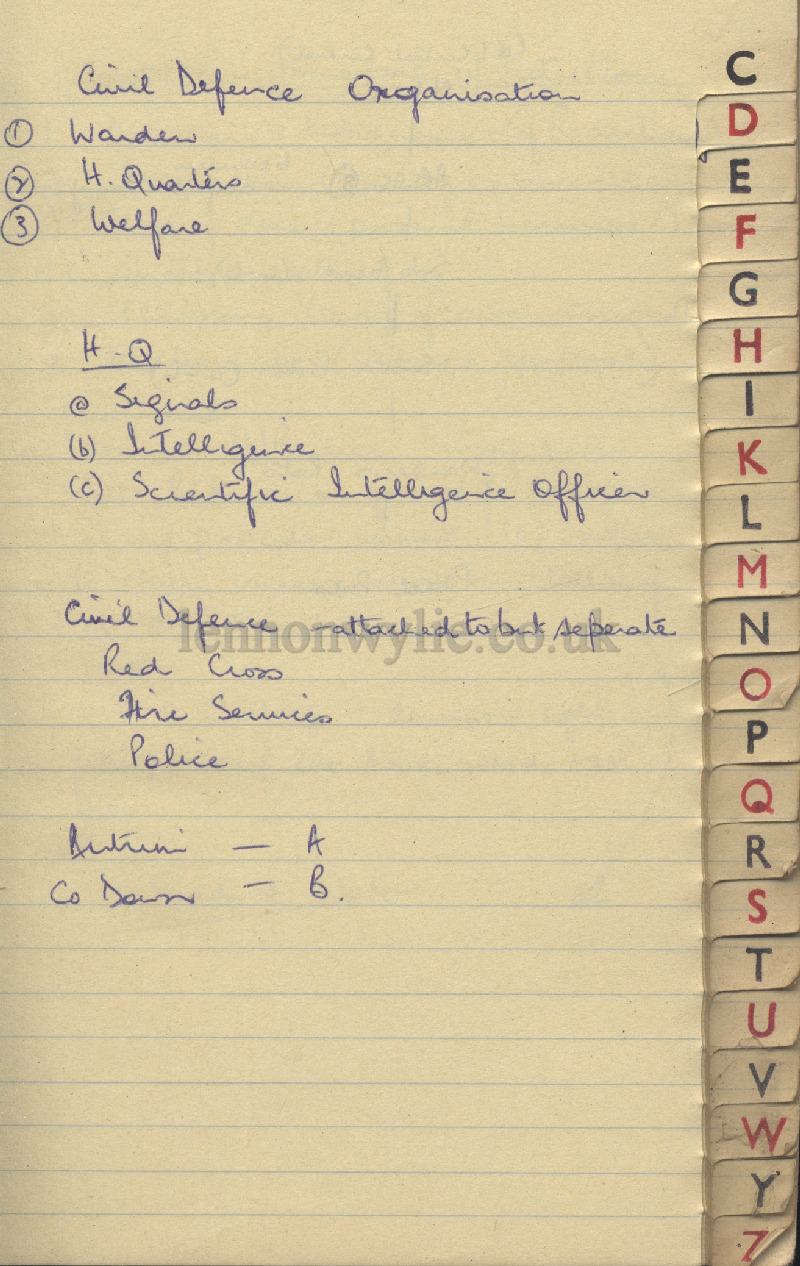 Civil Defence Organisation
① Warden
② H. Quarters
③ Welfare
H.Q
(a) Signals
(b) Intelligence
(c) Scientific Intelligence Officer
Civil Defence - attached to but seperate
Red Cross
Fire Services
Police
Antrim — A
Co Down — B.
lennonwylie.co.uk
C
D
E
F
G
H
I
K
L
M
N
O
P
Q
R
S
T
U
V
W
Y
Z